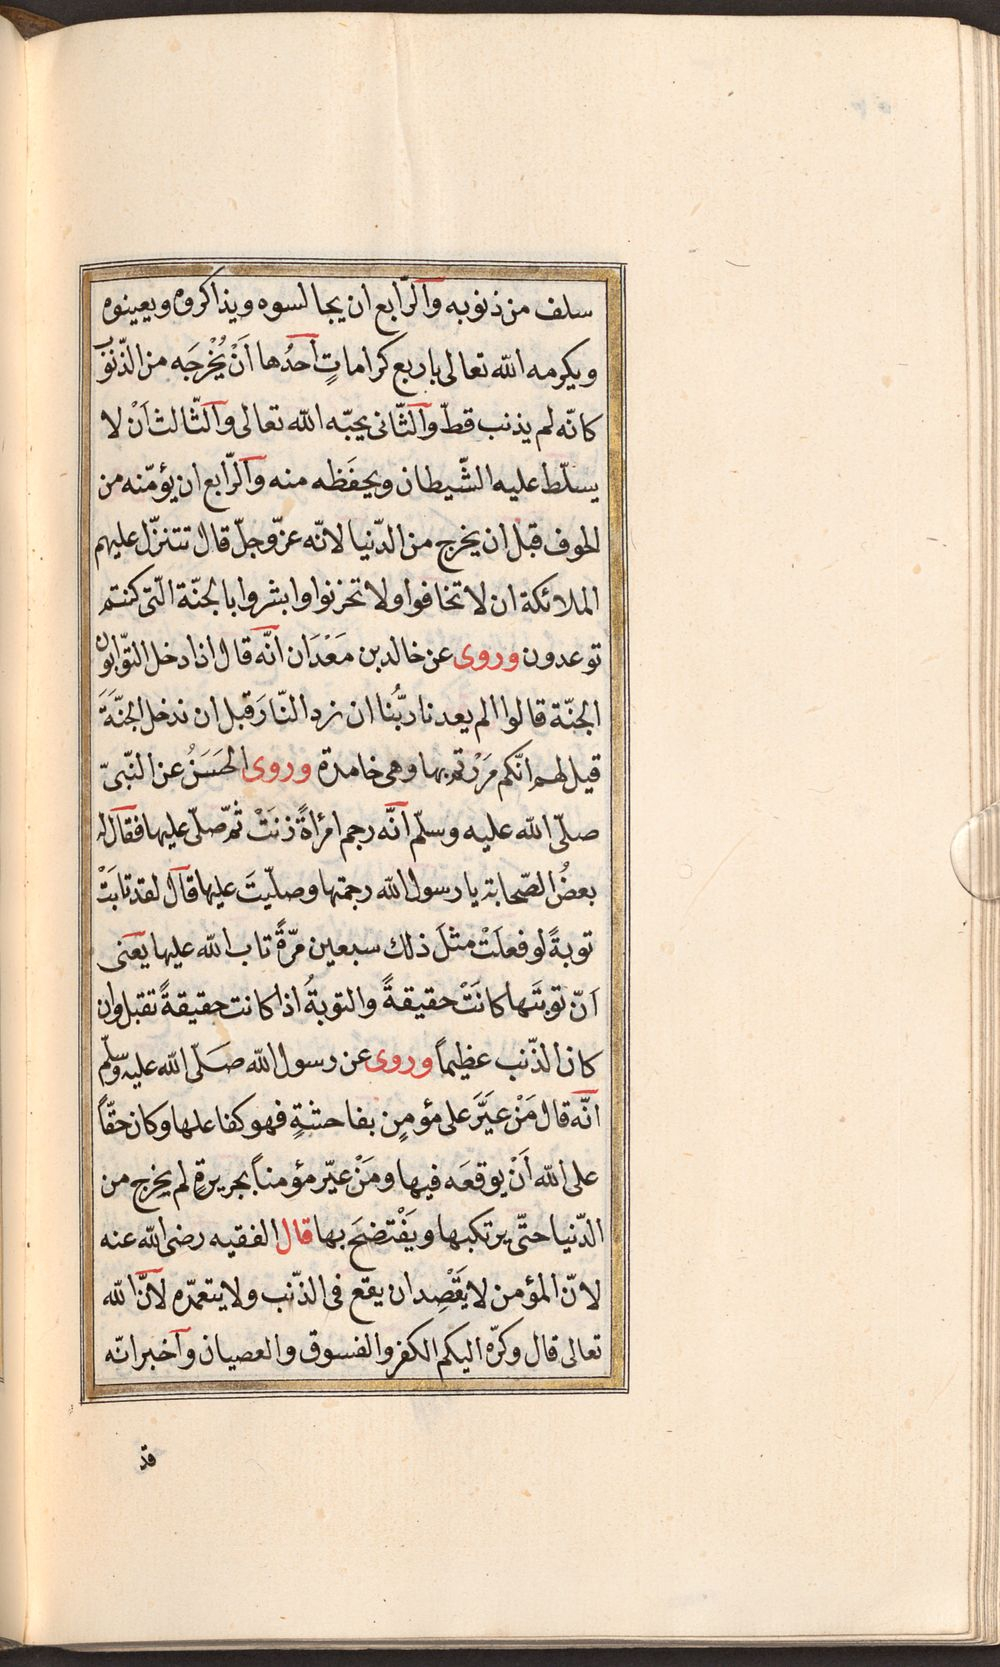 سلف من ذنوبه والرّابع ان يجالسوه ويذاكروه ويعينوه
ويكرمه الله تعالى باربع كراماتٍ احدُها اَنْ يُخْرجَه من الذّنوب
كانّه لم يذنب قطّ والثّانى يحبّه الله تعالى والثّالث اَنْ لا
يسلّط عليه الشّيطان ويحفَظه منه والرّابع ان يؤمّنه من
الخوف قبل ان يخرج من الدّنيا لانّه عزّ وجلّ قال تتنزّل عليهم
الملائكة ان لا تخافوا ولا تحزنوا وابشروا بالجنّة الّتى كنتم
توعدون وروى عن خالد بن مَعْدَان انّه قال اذا دخل التوّابون
الجنّة قالوا الم يعدنا ربُّنا ان نرد النّارَ قبل ان ندخل الجنَّةَ
قيل لهم انّكم مَرَرْتم بها وهى خامدة وروى الحَسَنُ عن النّبىّ
صلّى الله عليه وسلّم انّه رجم امرأةً زنَتْ ثمّ صلّى عليها فقال له
بعضُ الصّحابة يا رسول الله رجمتها وصلّيتَ عليها قال لقد تابَتْ
توبةً لو فعلَتْ مثلَ ذلك سبعين مرّةً تاب الله عليها يعنى
اَنّ توبتَها كانَتْ حقيقةً والتوبةُ اذا كانت حقيقةً تقبل وان
كان الذّنب عظيماً وروى عن رسول الله صَلّى الله عليه وسلّم
انّه قال مَنْ عيَّرَ على مؤمنٍ بفاحشةٍ فهو كفاعلها وكان حقّاً
على الله اَنْ يوقعَه فيها ومَنْ عيّر مؤمناً بجريرةٍ لم يخرج من
الدّنيا حتّى يرتكبها ويَفْتضحَ بها قال الفقيه رضى الله عنه
لانّ المؤمن لا يَقْصِد ان يقع فى الذّنب ولا يتعمّده لانَّ الله
تعالى قال وكرّه اليكم الكفر والفسوق والعصيان واخبر انّه
قد